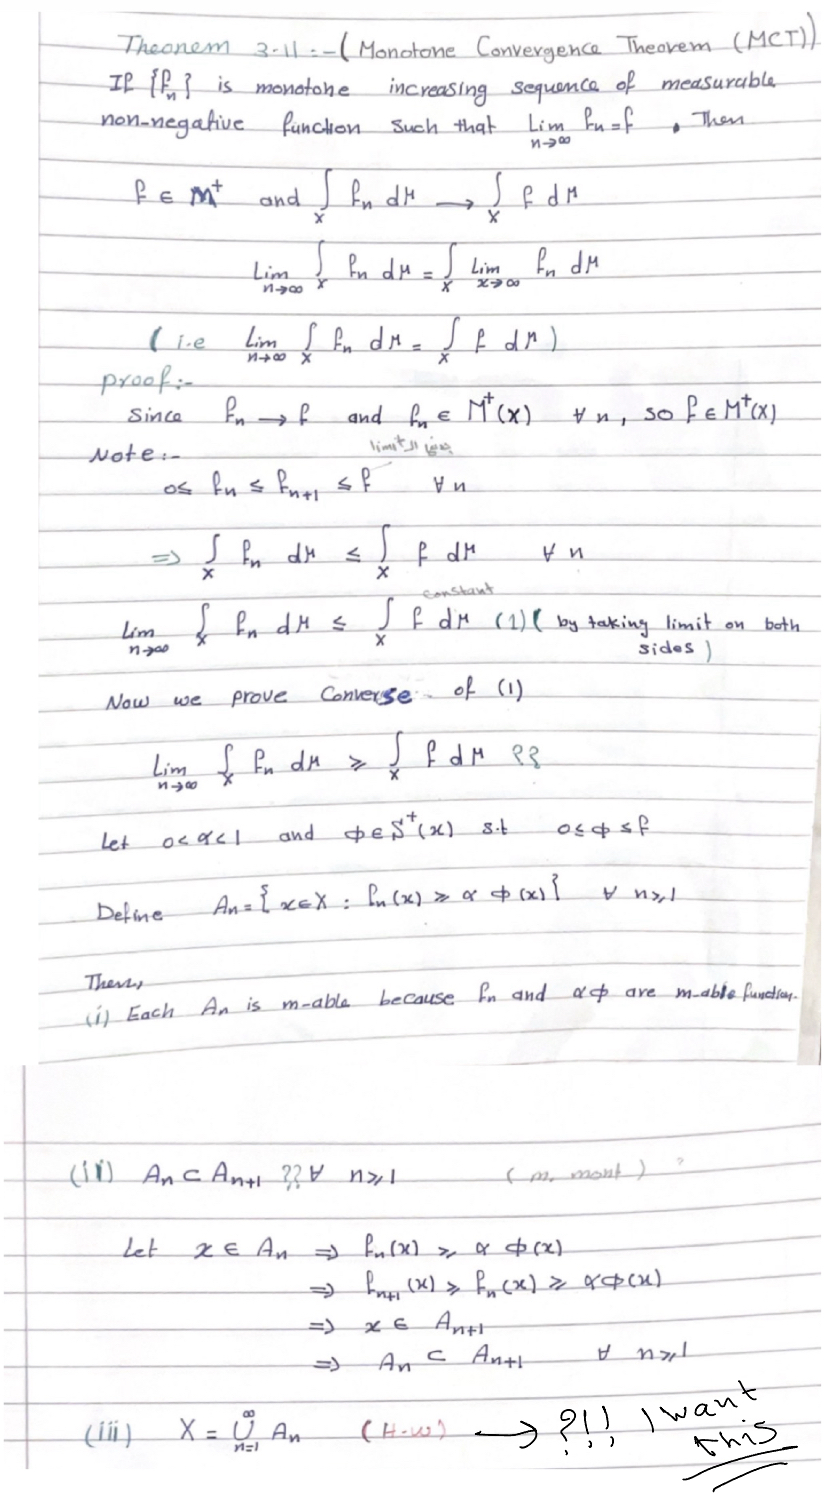 Theorem 3.11 :- (Monotone Convergence Theorem (MCT))
If {fₙ} is monotone increasing sequence of measurable
non-negative function such that Lim n→∞ fₙ = f . Then
f ∈ M⁺ and ∫_X fₙ dμ → ∫_X f dμ
Lim n→∞ ∫_X fₙ dμ = ∫_X Lim x→∞ fₙ dμ
(i.e Lim n→∞ ∫_X fₙ dμ = ∫_X f dμ)
proof:-
Since fₙ → f and fₙ ∈ M⁺(x) ∀ n, so f ∈ M⁺(x)
Note:-
limit ال
0 ≤ fₙ ≤ fₙ₊₁ ≤ f ∀ n
⇒ ∫_X fₙ dμ ≤ ∫_X f dμ ∀ n
constant
Lim n→∞ ∫_X fₙ dμ ≤ ∫_X f dμ (1) ( by taking limit on both
sides )
Now we prove Converse of (1)
Lim n→∞ ∫_X fₙ dμ ≥ ∫_X f dμ ??
Let 0<α<1 and φ ∈ S⁺(x) s.t 0 ≤ φ ≤ f
Define Aₙ = {x∈X : fₙ(x) ≥ α φ(x)} ∀ n≥1
Then,
(i) Each Aₙ is m-able because fₙ and αφ are m-able function.
(ii) Aₙ ⊂ Aₙ₊₁ ?? ∀ n≥1 (m. mont) ?
Let x ∈ Aₙ ⇒ fₙ(x) ≥ α φ(x)
⇒ fₙ₊₁(x) ≥ fₙ(x) ≥ αφ(x)
⇒ x ∈ Aₙ₊₁
⇒ Aₙ ⊂ Aₙ₊₁ ∀ n≥1
(iii) X = ⋃_{n=1}^{∞} Aₙ (H.w) → ?!! I want
this